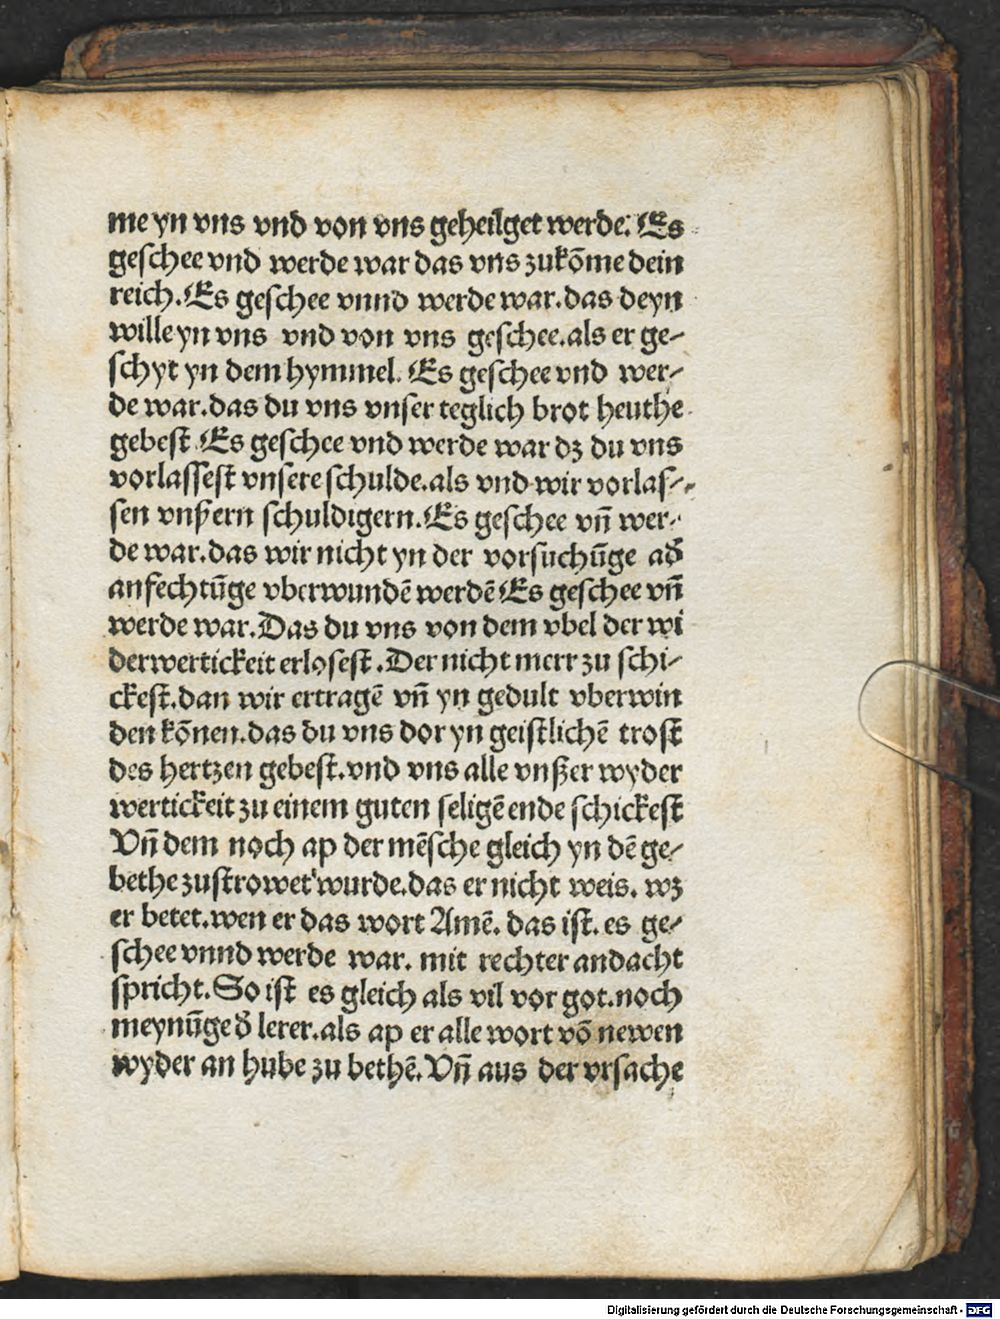 me yn vns vnd von vns geheilget werde. Es
geschee vnd werde war das vns zukōme dein
reich. Es geschee vnnd werde war. das deyn
wille yn vns vnd von vns geschee. als er ge⸗
schyt yn dem hymmel. Es geschee vnd wer⸗
de war. das du vns vnser teglich brot heuthe
gebest. Es geschee vnd werde war dz du vns
vorlassest vnsere schulde. als vnd wir vorlas⸗
sen vnßern schuldigern. Es geschee vn̄ wer⸗
de war. das wir nicht yn der vorsuchūge ad̕
anfechtūge vberwundē werdē Es geschee vn̄
werde war. Das du vns von dem vbel der wi
derwertickeit erlosest. Der nicht merr zu schi⸗
ckest. dan wir ertragē vn̄ yn gedult vberwin
den kōnen. das du vns dor yn geistlichē trost
des hertzen gebest. vnd vns alle vnßer wyder
wertickeit zu einem guten seligē ende schickest
Vn̄ dem noch ap der mēsche gleich yn dē ge⸗
bethe zustrowet wurde. das er nicht weis. wz
er betet. wen er das wort Amē. das ist. es ge⸗
schee vnnd werde war. mit rechter andacht
spricht. So ist es gleich als vil vor got. noch
meynūge d̕ lerer. als ap er alle wort vō newen
wyder an hube zu bethē. Vn̄ aus der vrsache
Digitalisierung gefördert durch die Deutsche Forschungsgemeinschaft - DFG